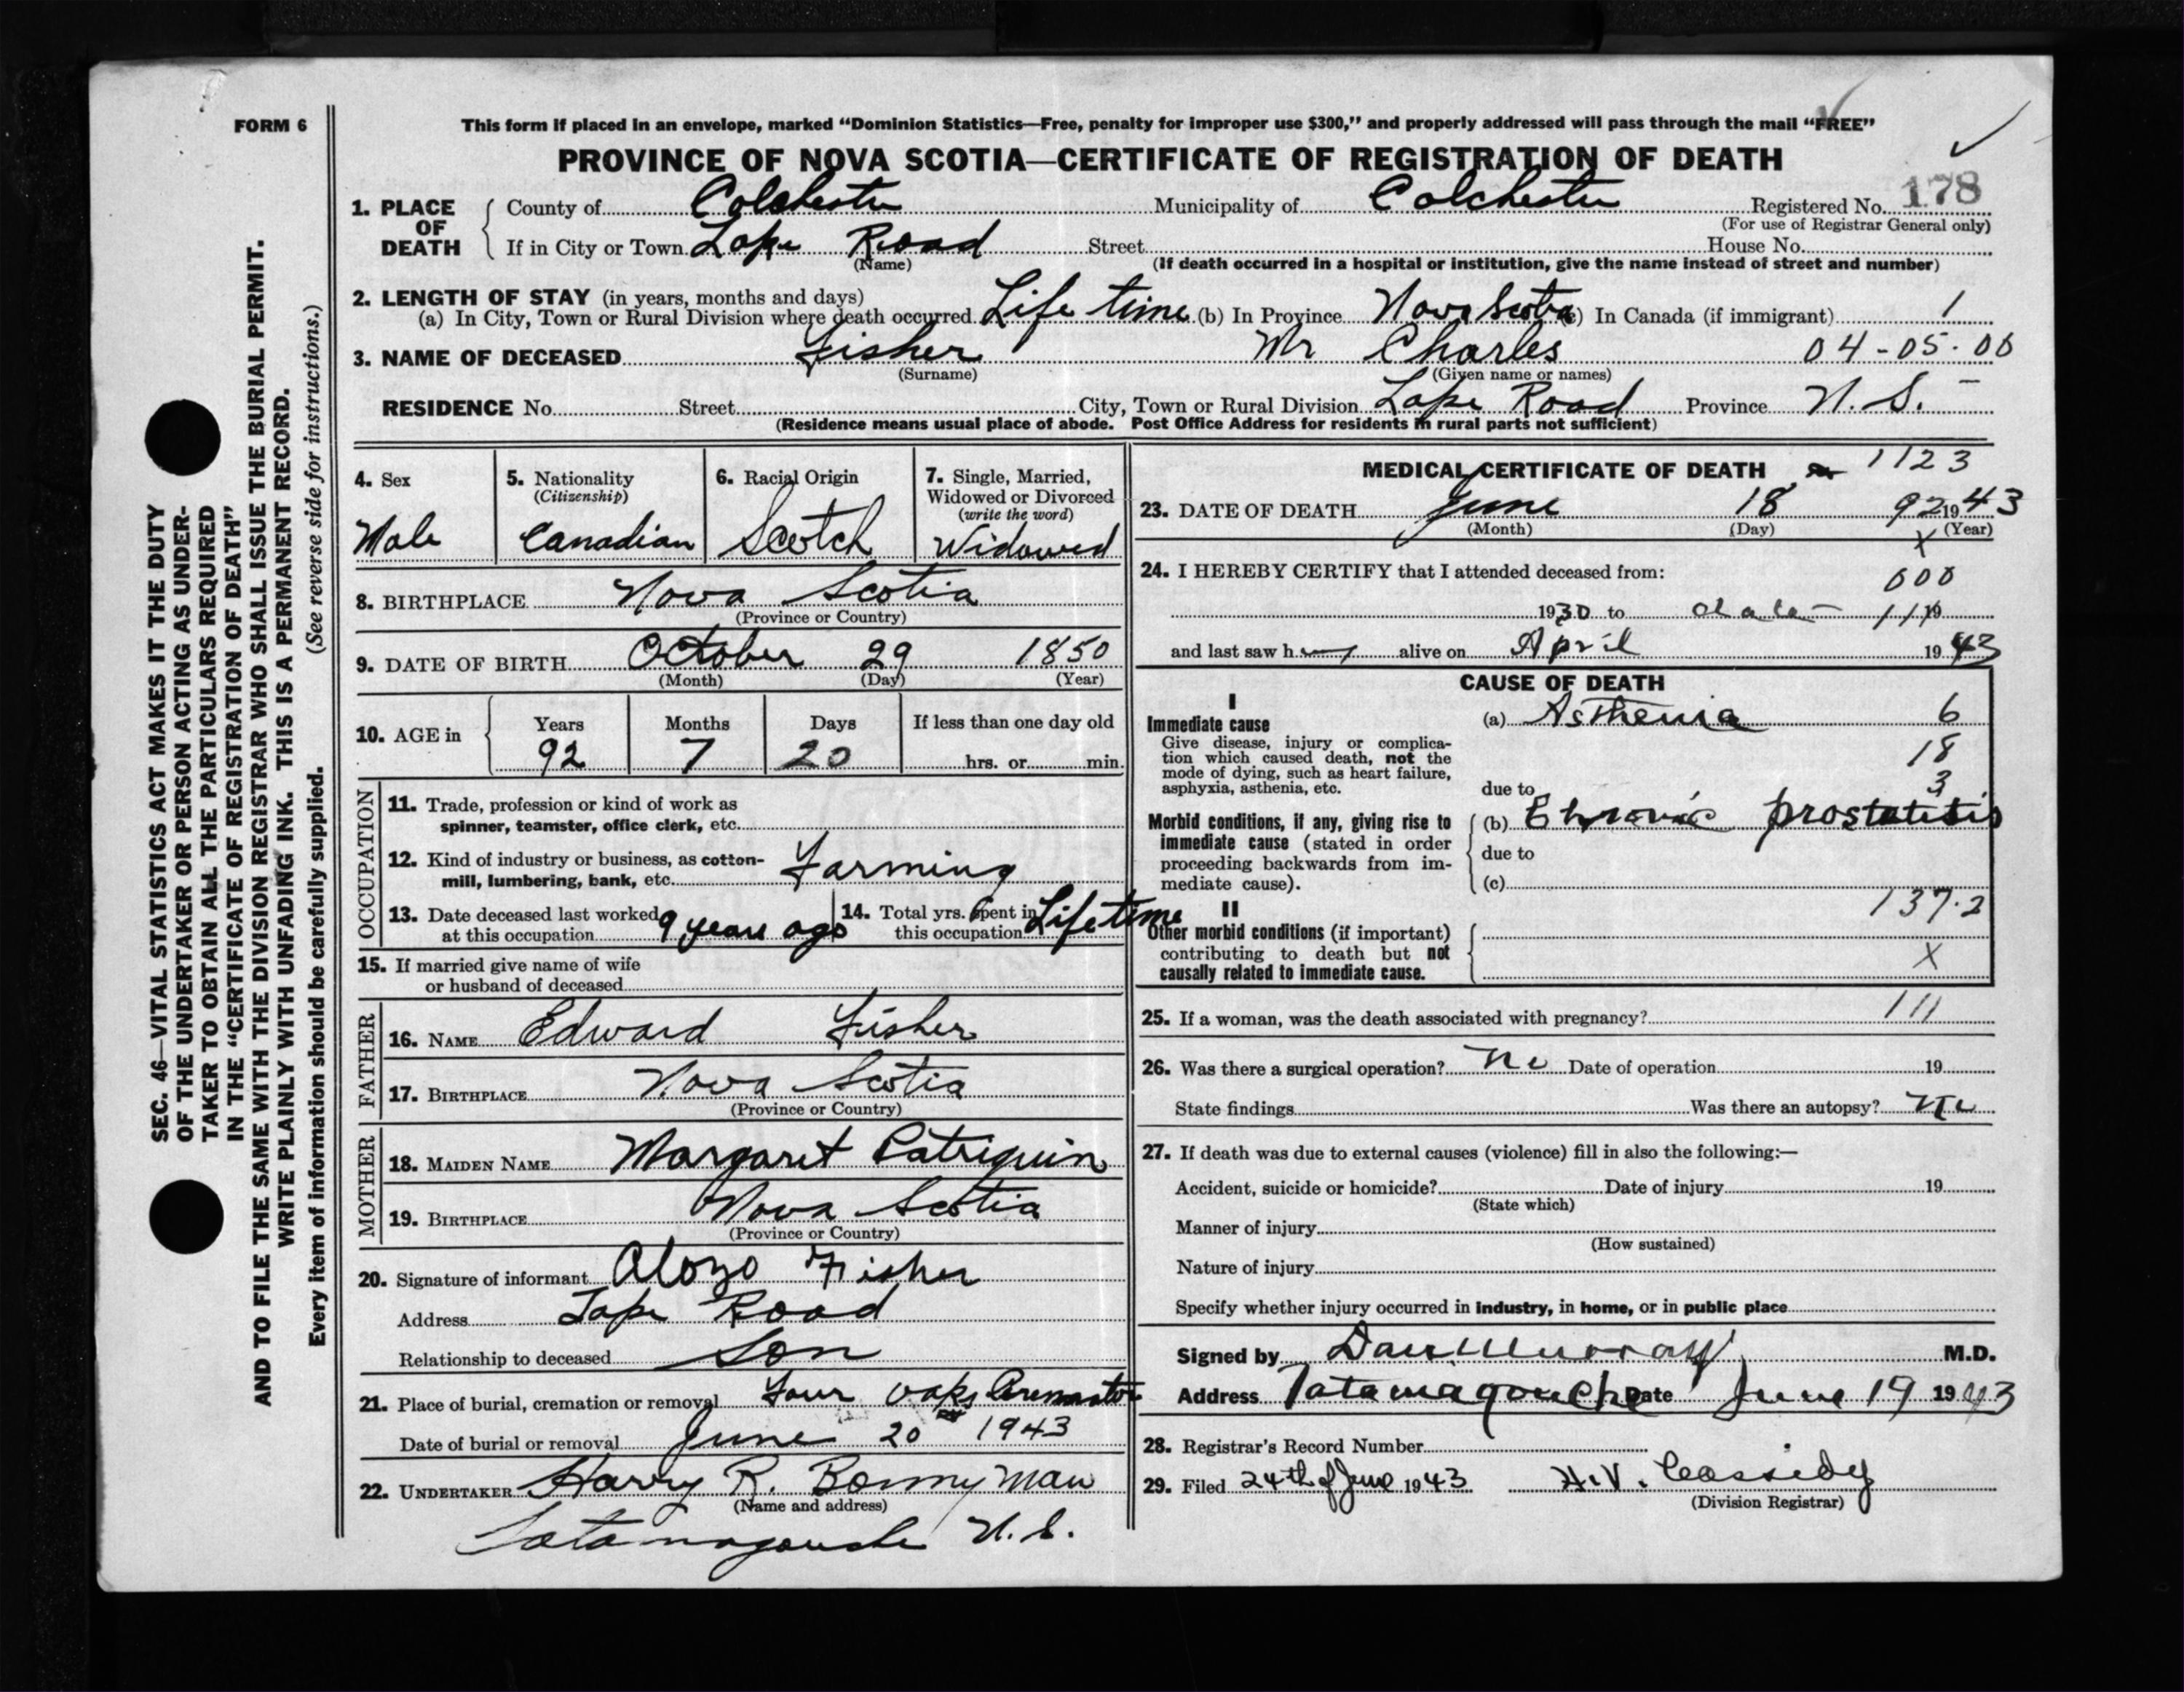 FORM 6
This form if placed in an envelope, marked “Dominion Statistics—Free, penalty for improper use $300,” and properly addressed will pass through the mail “FREE”
PROVINCE OF NOVA SCOTIA—CERTIFICATE OF REGISTRATION OF DEATH
1. PLACE OF DEATH County of Colchester Municipality of Colchester Registered No. 178
(For use of Registrar General only)
If in City or Town Road Street House No.
(Name) (If death occurred in a hospital or institution, give the name instead of street and number)
2. LENGTH OF STAY (in years, months and days)
(a) In City, Town or Rural Division where death occurred Life time (b) In Province Nova Scotia (c) In Canada (if immigrant) 1
3. NAME OF DECEASED Fisher Mr Charles 04-05-00
(Surname) (Given name or names)
RESIDENCE No. Street City, Town or Rural Division Road Province N. S.
(Residence means usual place of abode. Post Office Address for residents in rural parts not sufficient)
4. Sex
Male
5. Nationality
(Citizenship)
Canadian
6. Racial Origin
Scotch
7. Single, Married,
Widowed or Divorced
(write the word)
Widowed
8. BIRTHPLACE Nova Scotia
(Province or Country)
9. DATE OF BIRTH October 29 1850
(Month) (Day) (Year)
10. AGE in Years Months Days If less than one day old
92 7 20 hrs. or min.
OCCUPATION
11. Trade, profession or kind of work as
spinner, teamster, office clerk, etc.
12. Kind of industry or business, as cotton-
mill, lumbering, bank, etc. Farming
13. Date deceased last worked
at this occupation 9 years ago
14. Total yrs. spent in
this occupation Life time
15. If married give name of wife
or husband of deceased
FATHER
16. NAME Edward Fisher
17. BIRTHPLACE Nova Scotia
(Province or Country)
MOTHER
18. MAIDEN NAME Margaret Patriquin
19. BIRTHPLACE Nova Scotia
(Province or Country)
20. Signature of informant Alonzo Fisher
Address Road
Relationship to deceased Son
21. Place of burial, cremation or removal Four Oaks
Date of burial or removal June 20 1943
22. UNDERTAKER Harry R. Bonnyman
(Name and address)
Tatamagouche N. S.
MEDICAL CERTIFICATE OF DEATH 1123
23. DATE OF DEATH June 18 92 1943
(Month) (Day) (Year)
X
24. I HEREBY CERTIFY that I attended deceased from:
000
1930 to date 111 19
and last saw h alive on April 1943
CAUSE OF DEATH
I
Immediate cause
Give disease, injury or complica-
tion which caused death, not the
mode of dying, such as heart failure,
asphyxia, asthenia, etc.
(a) Asthenia 6
18
3
due to
Morbid conditions, if any, giving rise to
immediate cause (stated in order
proceeding backwards from im-
mediate cause).
(b) Chronic prostatitis
due to
(c)
137.2
II
Other morbid conditions (if important)
contributing to death but not
causally related to immediate cause.
X
25. If a woman, was the death associated with pregnancy? 111
26. Was there a surgical operation? No Date of operation 19
State findings Was there an autopsy? No
27. If death was due to external causes (violence) fill in also the following:—
Accident, suicide or homicide? Date of injury 19
(State which)
Manner of injury
(How sustained)
Nature of injury
Specify whether injury occurred in industry, in home, or in public place
Signed by Dan Murray M.D.
Address Tatamagouche Date June 19 1943
28. Registrar's Record Number
29. Filed 24th of June 1943 H.V. Cassidy
(Division Registrar)
SEC. 46—VITAL STATISTICS ACT MAKES IT THE DUTY
OF THE UNDERTAKER OR PERSON ACTING AS UNDER-
TAKER TO OBTAIN ALL THE PARTICULARS REQUIRED
IN THE “CERTIFICATE OF REGISTRATION OF DEATH”
AND TO FILE THE SAME WITH THE DIVISION REGISTRAR WHO SHALL ISSUE THE BURIAL PERMIT.
WRITE PLAINLY WITH UNFADING INK. THIS IS A PERMANENT RECORD.
Every item of information should be carefully supplied. (See reverse side for instructions.)